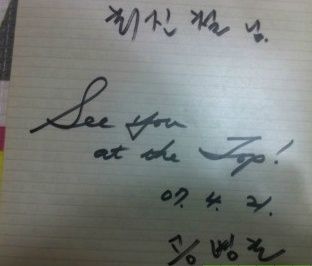 최진철 님.
See you
at the Top!
07. 4. 21.
공병호